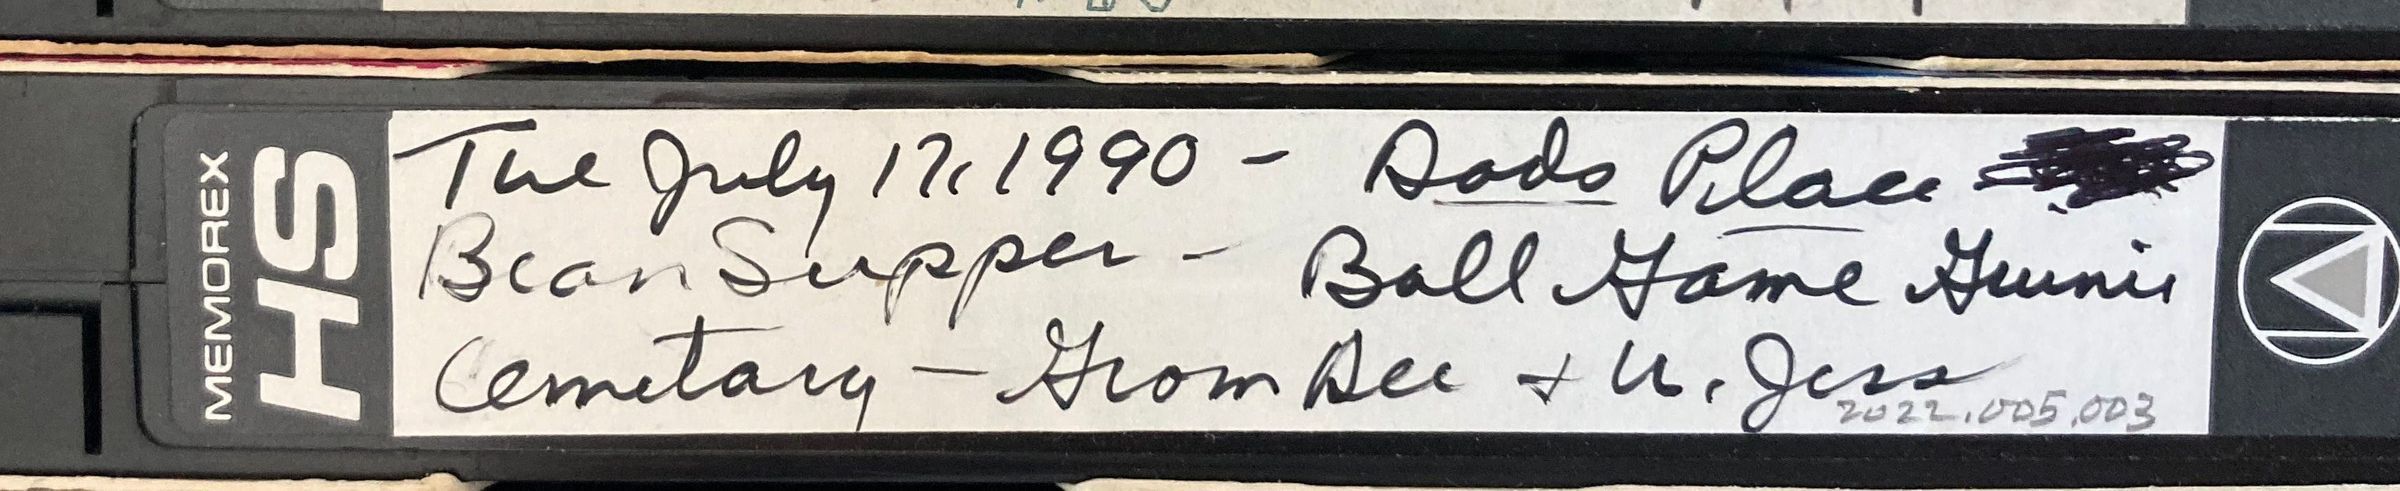 MEMOREX
HS
Tue July 17, 1990 - Dads Place
Bean Supper - Ball Game
Cemetary - From Dee + U. Jess
2022.005.003